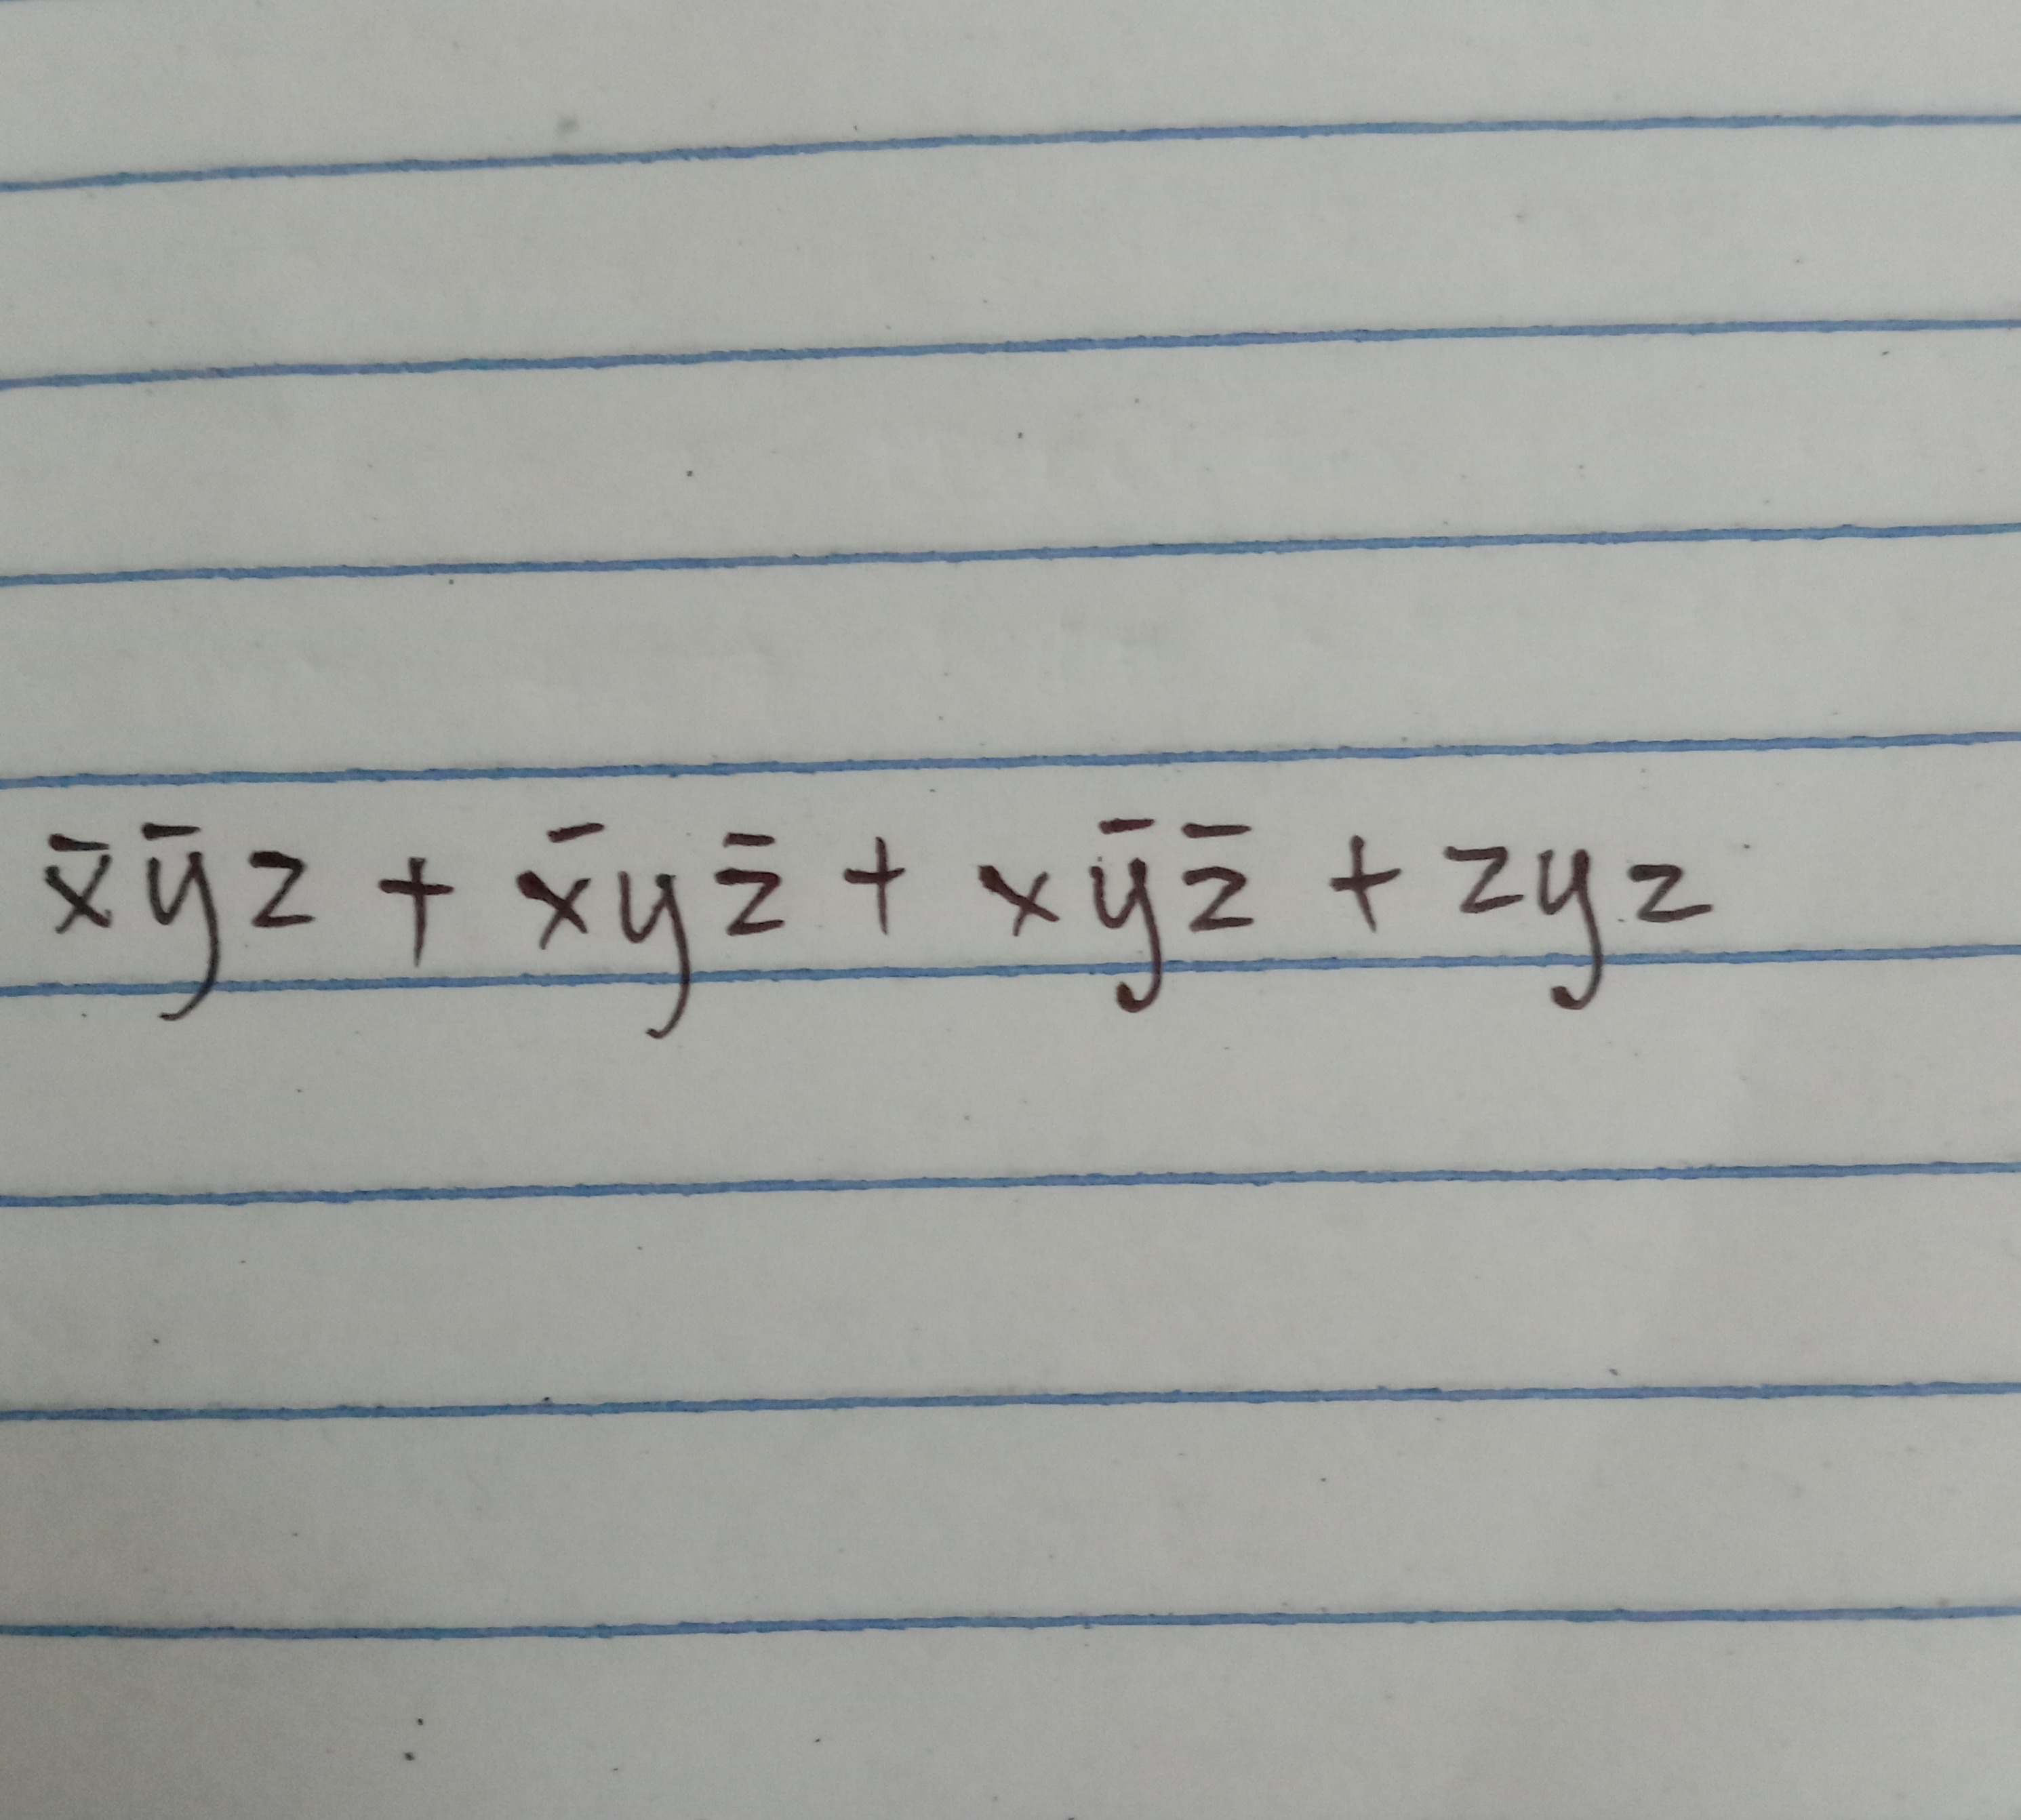 x̄ȳz + x̄yz̄ + xȳz̄ + zyz